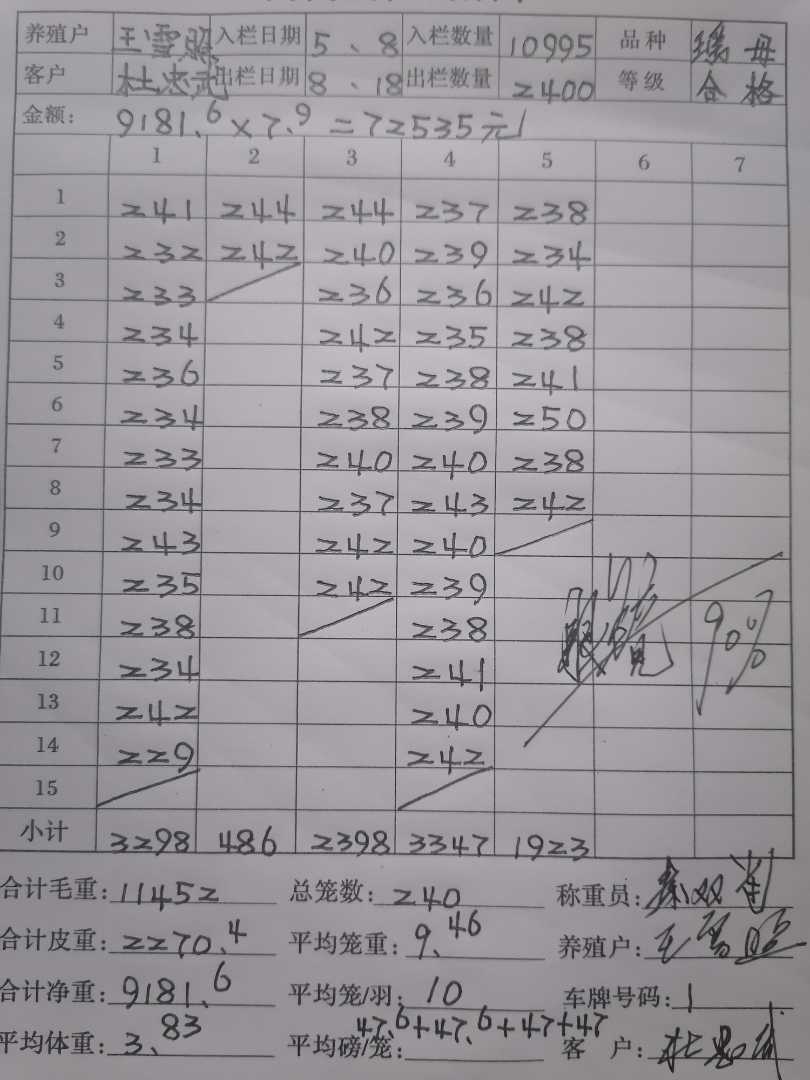 养殖户 王雪照 入栏日期 5、8 入栏数量 10995 品种
客户 杜忠武 出栏日期 8、18 出栏数量 2400 等级 合格
金额: 9181.6×7.9=72535元
1 2 3 4 5 6 7
1 241 244 244 237 238
2 232 242 240 239 234
3 233 236 236 242
4 234 242 235 238
5 236 237 238 241
6 234 238 239 250
7 233 240 240 238
8 234 237 243 242
9 243 242 240
10 235 242 239
11 238 238
12 234 241
13 242 240
14 229 242
15
90%
小计 3298 486 2398 3347 1923
合计毛重: 11452 总笼数: 240 称重员:
合计皮重: 2270.4 平均笼重: 9.46 养殖户: 王雪照
合计净重: 9181.6 平均笼/羽: 10 车牌号码: 1
平均体重: 3.83 平均磅/笼: 47.6+47.6+47+47 客户: 杜忠武